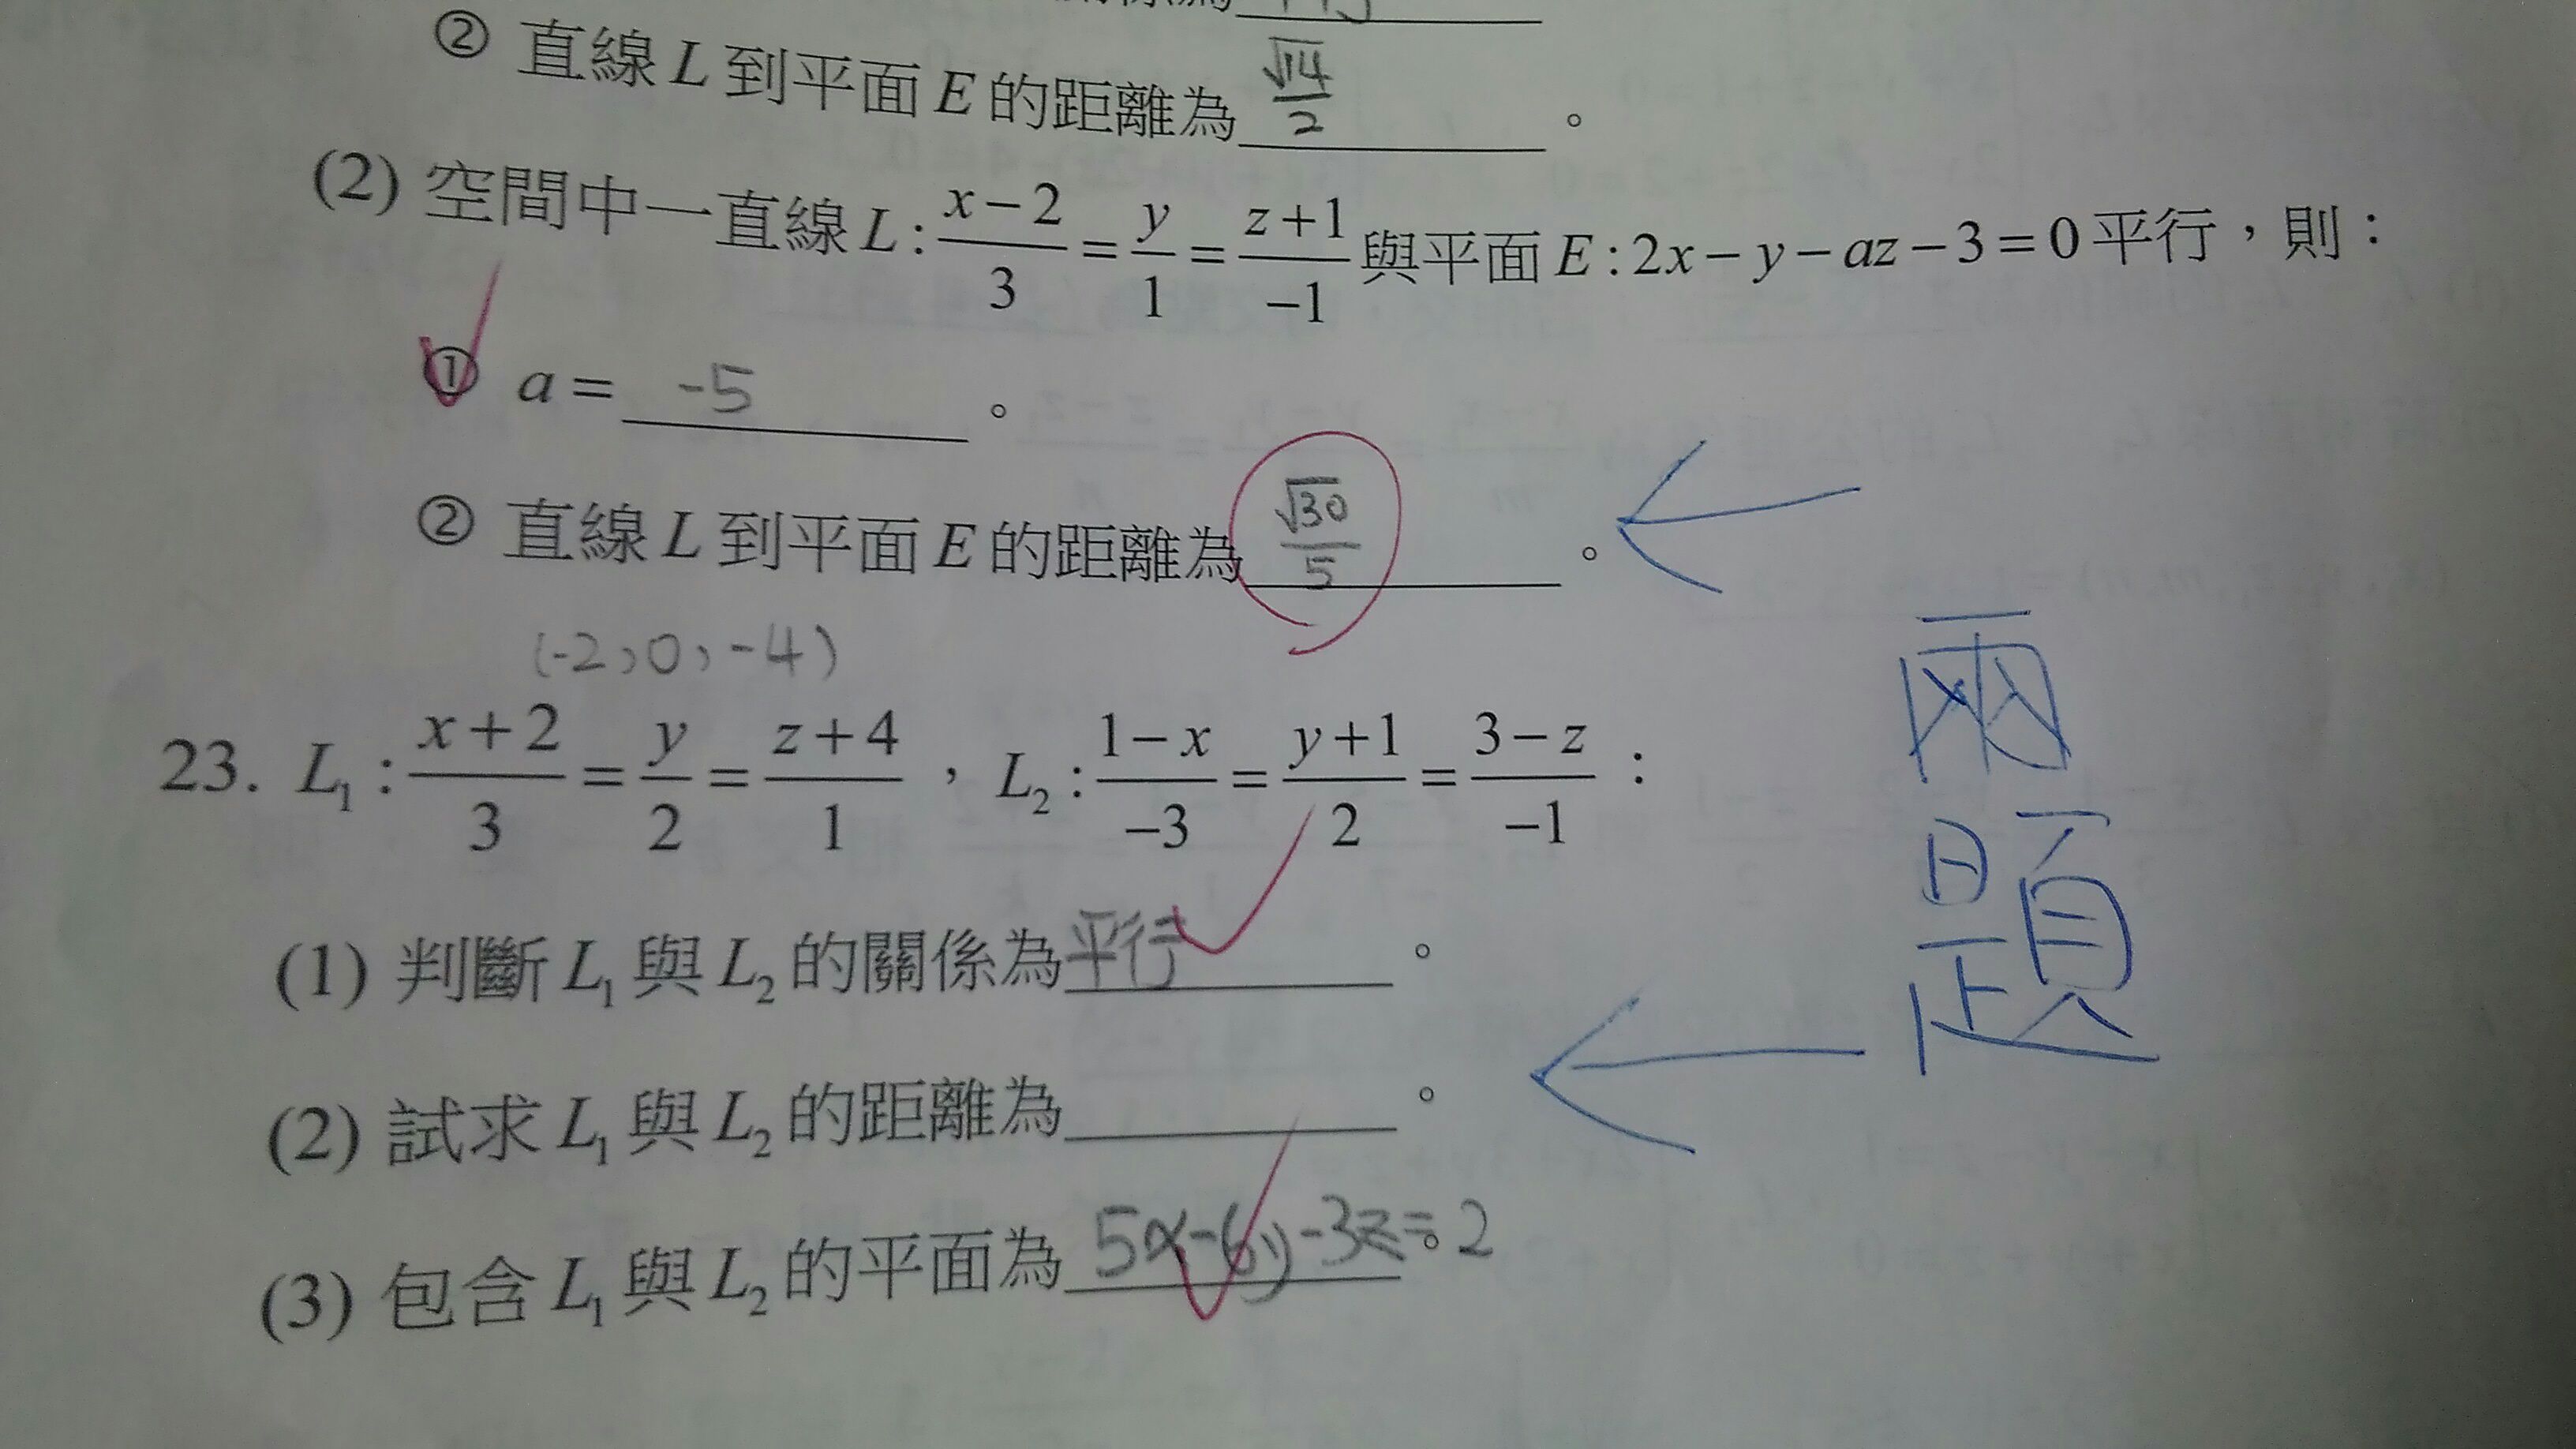 ② 直線 L 到平面 E 的距離為 √14/2 。
(2) 空間中一直線 L : (x−2)/3 = y/1 = (z+1)/−1 與平面 E : 2x − y − az − 3 = 0 平行，則：
① a = -5 。
② 直線 L 到平面 E 的距離為 √30/5 。
(-2,0,-4)
兩題
23. L₁ : (x+2)/3 = y/2 = (z+4)/1 ， L₂ : (1−x)/−3 = (y+1)/2 = (3−z)/−1 ：
(1) 判斷 L₁ 與 L₂ 的關係為 平行 。
(2) 試求 L₁ 與 L₂ 的距離為 。
(3) 包含 L₁ 與 L₂ 的平面為 5x-6y-3z=2 。